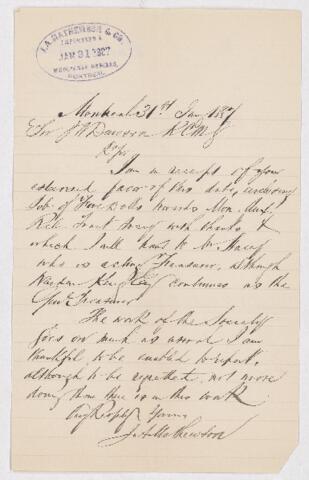 J. A. MATHEWSON & CO.
IMPORTERS
JAN 31 1887
MONTREAL
Montreal 31st Jany 1887
Sir J W Dawson
I am in receipt of your
esteemed favor of this date, enclosing
Sub. of Five Dolls towards Mon.
with thanks, &
which I will hand to Mr
who is acting Treasurer, although
continues as the
Treasurer
The work of the Society
goes on much as usual I am
thankful to be enabled to report,
although to be regretted, not more
doing than there is in this work
Yours
J A Mathewson